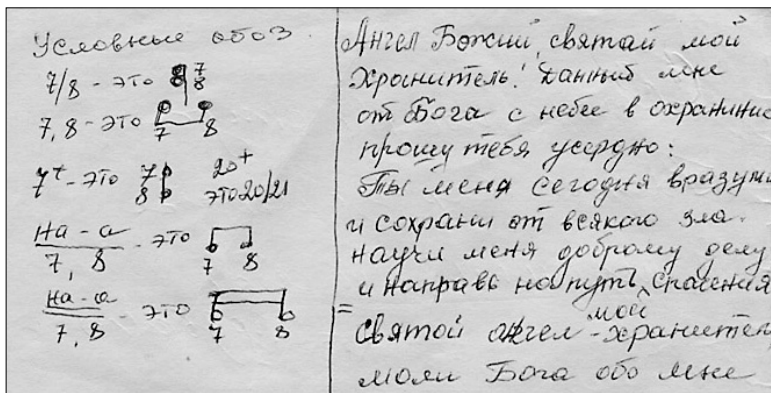 Условные обоз.
7/8 - это 8 7/8
7, 8 - это 7 8
7+ - это 7 8 20+
это 20/21
на-а
7, 8 - это 7 8
на-а
7, 8 - это 7 8
Ангел Божий, святай мой
Хранитель! Данный мне
от Бога с небес в охранение
прошу тебя усердно:
Ты меня сегодня вразуми
и сохрани от всякого зла.
научи меня доброму делу
и направь на путь спасения
= мой
Святой ангел-хранитель
моли Бога обо мне